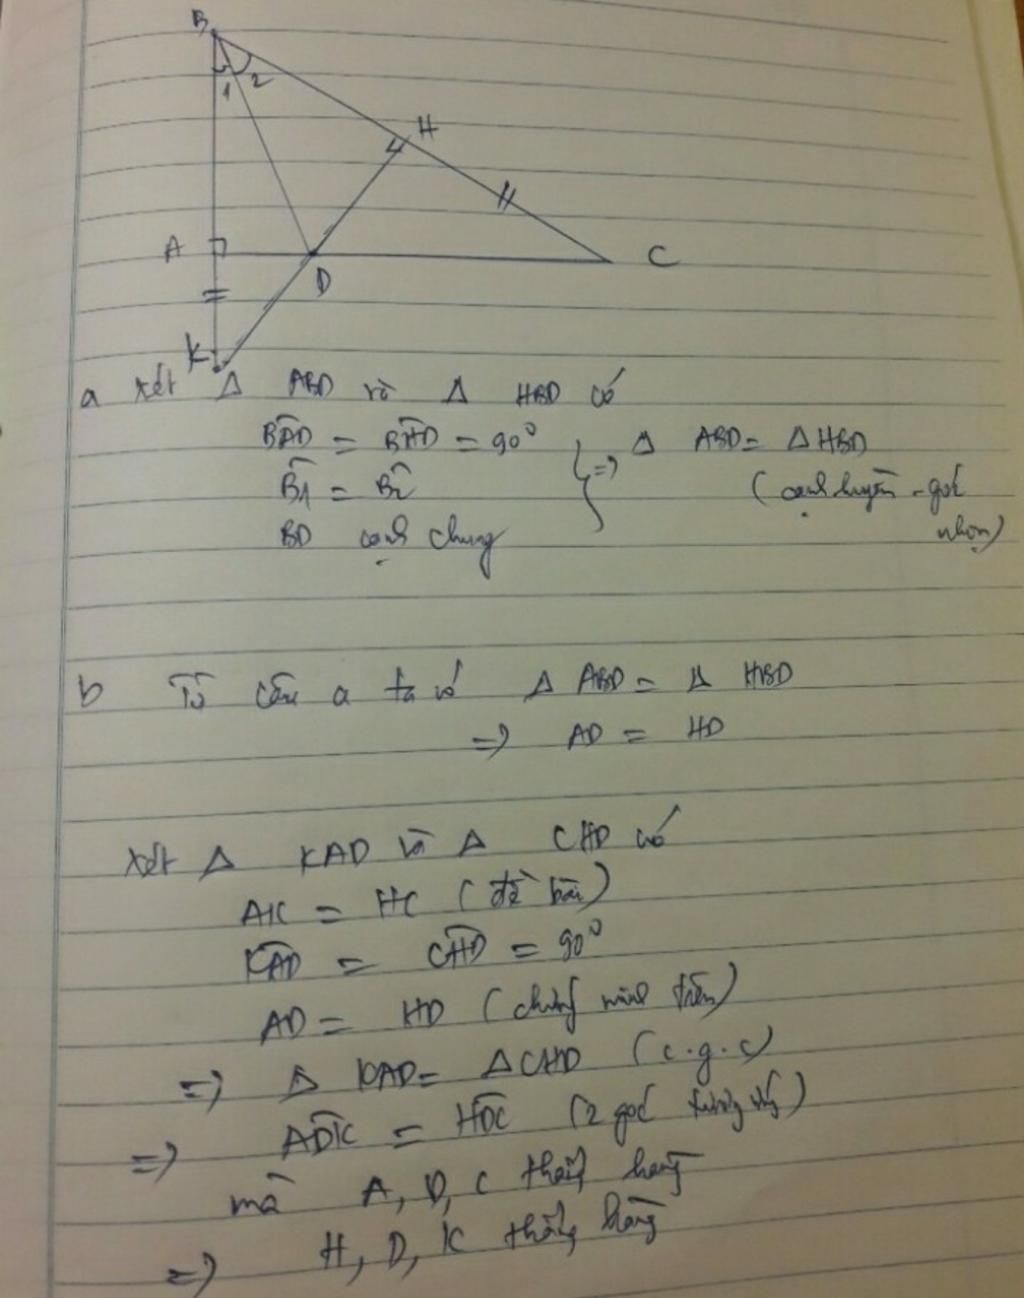 B
1 2
H
A
D
C
K
a xét Δ ABD và Δ HBD có
BAD = BHD = 90°
=> Δ ABD = Δ HBD
B1 = B2
(cạnh huyền - góc
BD cạnh chung
nhọn)
b Từ câu a ta có Δ ABD = Δ HBD
=> AD = HD
xét Δ KAD và Δ CHD có
AK = HC (đề bài)
KAD = CHD = 90°
AD = HD (chứng minh trên)
=> Δ KAD = Δ CHD (c.g.c)
=> ADK = HDC (2 góc tương ứng)
mà A, D, C thẳng hàng
=> H, D, K thẳng hàng